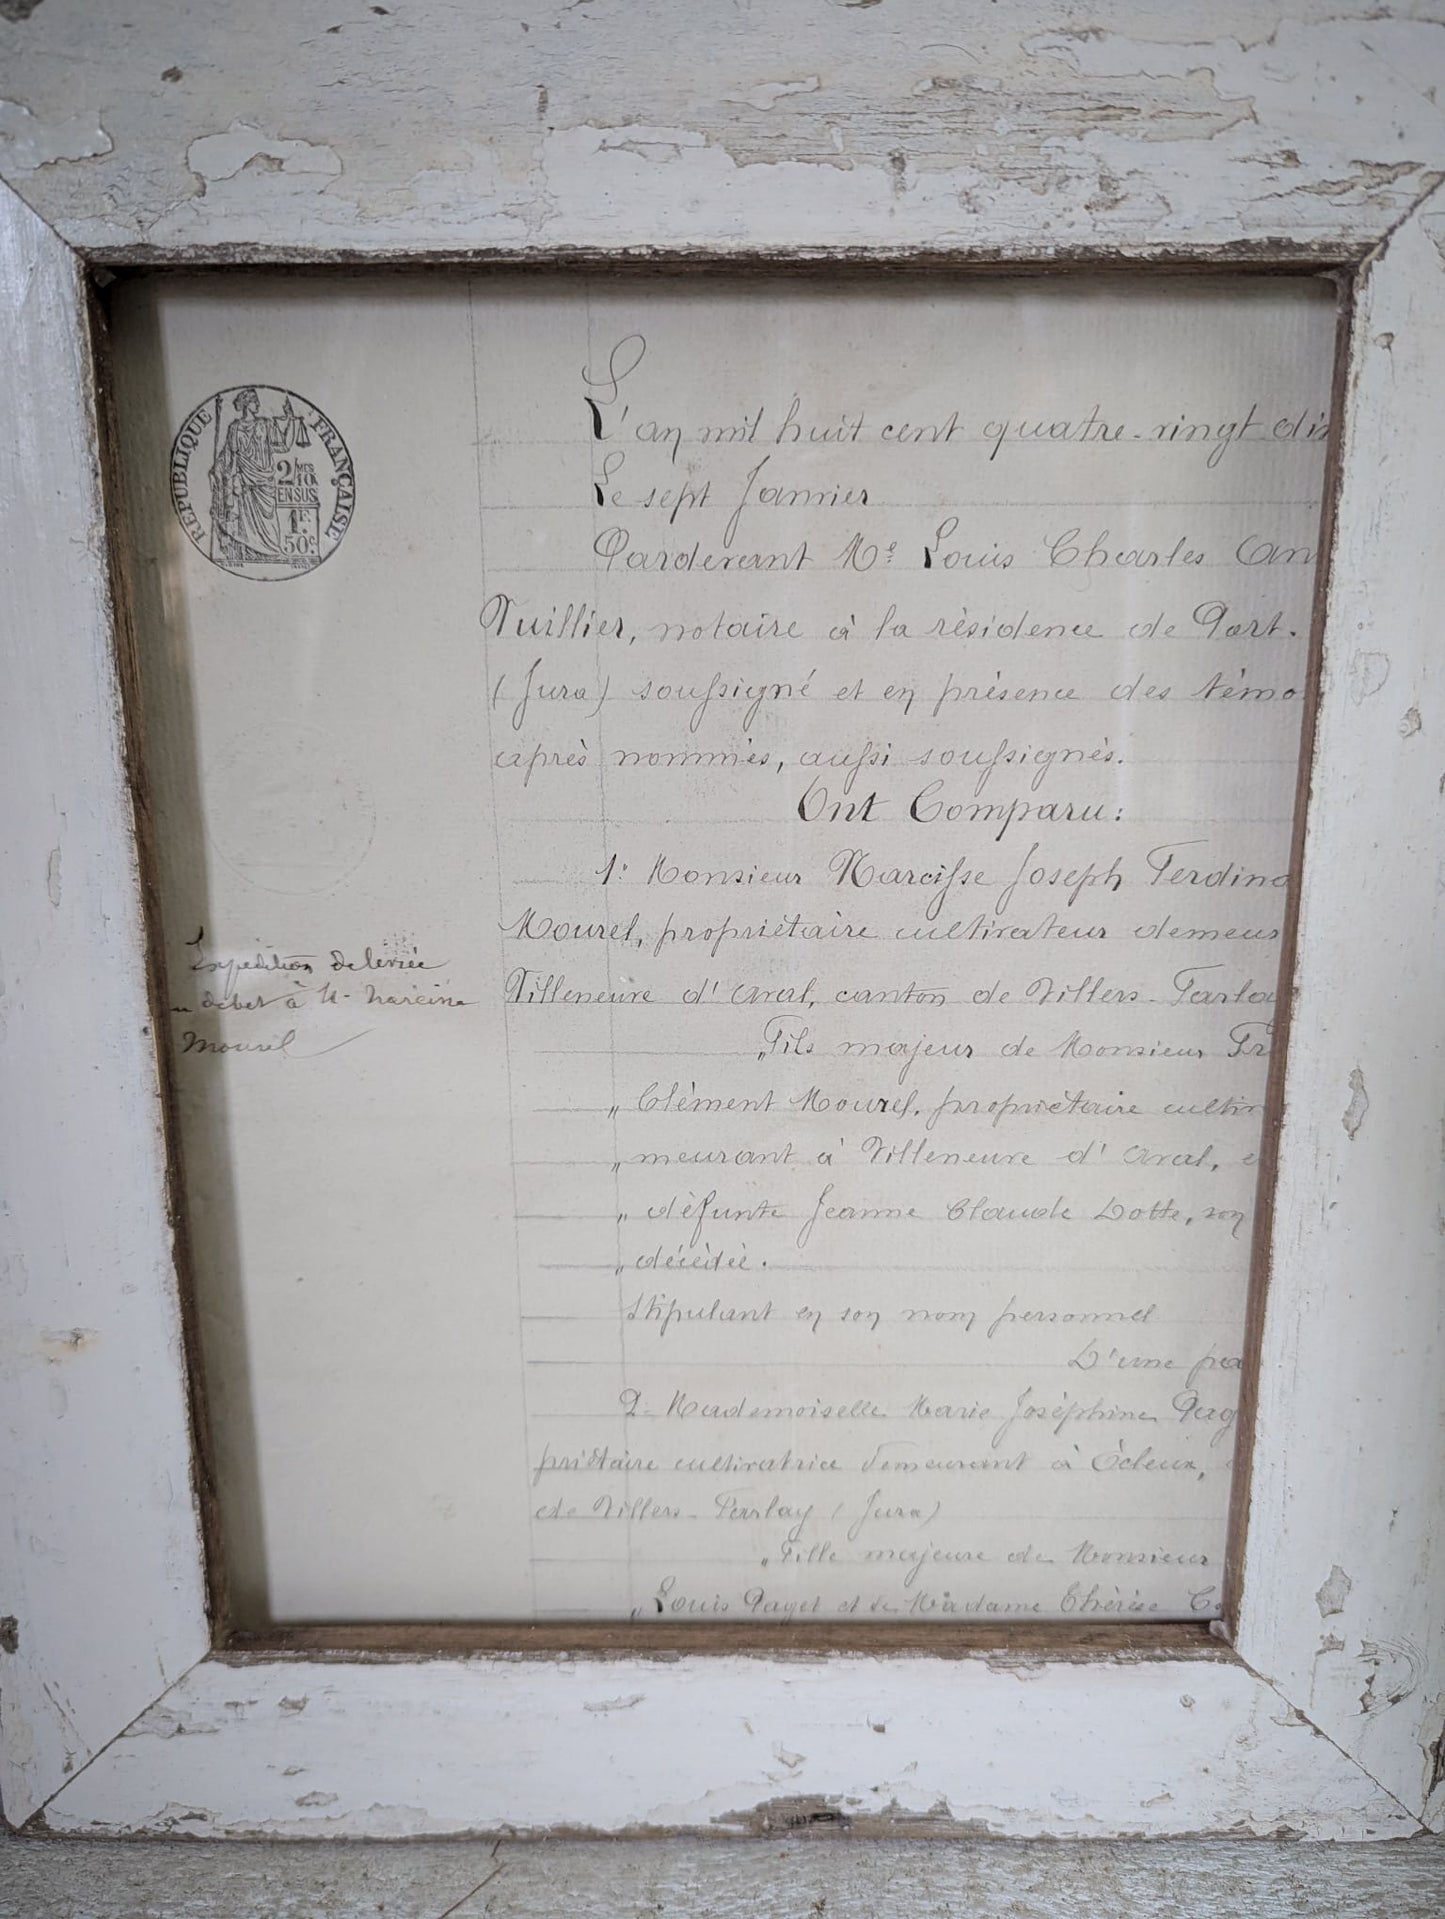 RÉPUBLIQUE FRANÇAISE
2/10 MES
EN SUS
1F.
50c.
L'an mil huit cent quatre-vingt dix
Le sept Janvier
Pardevant Me Louis Charles
Vuillier, notaire à la résidence de Port-
(Jura) soussigné et en présence des témo
après nommés, aussi soussignés.
Ont Comparu:
1° Monsieur Narcisse Joseph Ferdina
Mourel, propriétaire cultivateur demeur
Villeneuve d'aval, canton de Villers-Farlay
„ Fils majeur de Monsieur Fr
„ Clément Mourel, propriétaire cultiv
„ meurant à Villeneuve d'aval, e
„ défunte Jeanne Claude Lotte, son
„ décédée.
Stipulant en son nom personnel
D'une pa
2° Mademoiselle Marie Joséphine Pag
priétaire cultivatrice demeurant à Ecleux,
de Villers-Farlay (Jura)
„ Fille majeure de Monsieur
„ Louis Paget et de Madame Thérèse
Expédition délivrée
à M. Narcisse
Mourel